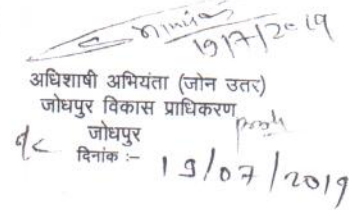 19/7/2019
अधिशाषी अभियंता (जोन उतर)
जोधपुर विकास प्राधिकरण
जोधपुर
दिनांक :- 19/07/2019